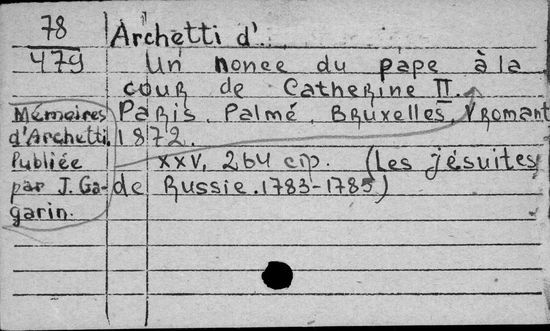 78
479
Archetti d'..
Un nonce du pape à la
cour de Catherine II.
Paris, Palmé, Bruxelles, Vromant
1872.
XXV, 264 cтр. (Les jésuites
de Russie. 1783-1785)
Mémoires
d'Archetti.
Publiée
par J. Ga-
garin.